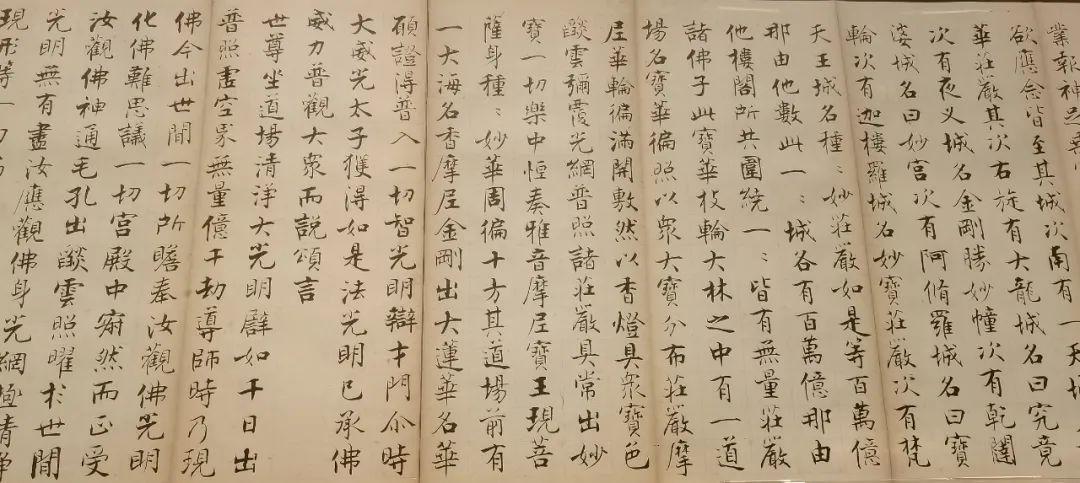 業報神
欲應念皆至其城次南有一天城
華莊嚴其次右旋有大龍城名曰究竟
次有夜叉城名金剛勝妙幢次有乾闥
婆城名曰妙宮次有阿脩羅城名曰寶
輪次有迦樓羅城名妙寶莊嚴次有梵
天王城名種〻妙莊嚴如是等百萬億
那由他數此一〻城各有百萬億那由
他樓閣所共圍繞一〻皆有無量莊嚴
諸佛子此寶華枝輪大林之中有一道
場名寶華徧照以眾大寶分布莊嚴摩
尼華輪徧滿開敷然以香燈具眾寶色
燄雲彌覆光網普照諸莊嚴具常出妙
寶一切樂中恒奏雅音摩尼寶王現菩
薩身種〻妙華周徧十方其道場前有
一大海名香摩尼金剛出大蓮華名華
願證得普入一切智光明辯才門尒時
大威光太子獲得如是法光明已承佛
威力普觀大眾而說頌言
世尊坐道場清淨大光明譬如千日出
普照虛空界無量億千劫導師時乃現
佛今出世間一切所瞻奉汝觀佛光明
化佛難思議一切宮殿中寂然而正受
汝觀佛神通毛孔出燄雲照曜於世間
光明無有盡汝應觀佛身光網極清淨
現形等一切